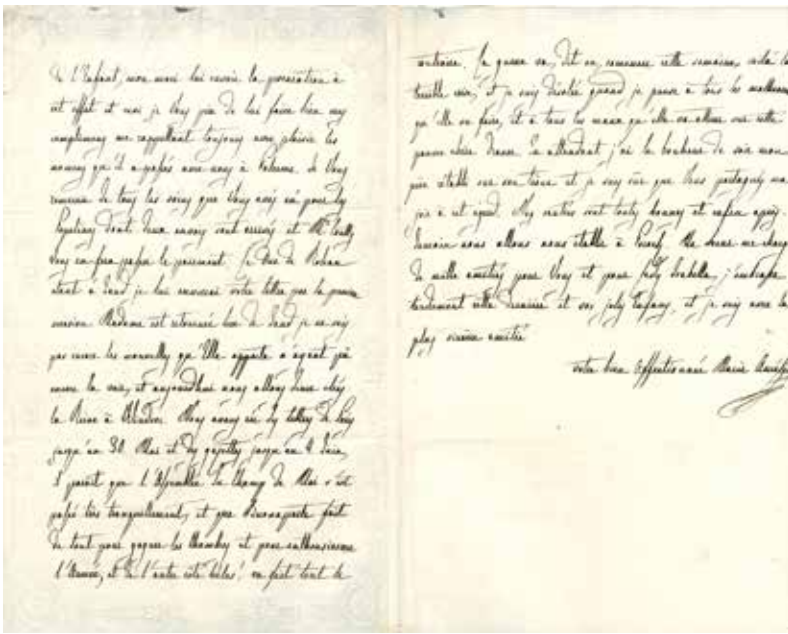 de l'Enfant, mon mari lui envoie la procuration à
cet effet et moi je Vous prie de lui faire bien mes
complimens me rappellant toujours avec plaisir les
momens qu'il a passés avec nous à Palerme. Je Vous
remercie de tous les soins que Vous avez eû pour les
dont deux envoys sont arrivés et Mr
Vous en fera passer le payement. Le Duc de Rohan
étant à Gand je lui enverrai votre lettre par la première
occasion. Madame est retournée hier de Gand je ne sais
pas encore les nouvelles qu'Elle apporte n'ayant pû
encore la voir, et aujourdhui nous allons diner chez
la Reine à Windsor. Nous avons eû des lettres de Paris
jusqu'au 30 Mai et des gazettes jusqu'au 2 Juin,
il parait que l'Assemblée du Champ de Mai s'est
passé très tranquillement, et que Buonaparte fait
de tout pour gagner les Chambres et pour enthousiasmer
l'Armée, et de l'autre côté hélas! on fait tout le
contraire. La guerre va, dit on, commencer cette semaine, voilà la
terrible crise, et je suis désolée quand je pense à tous les malheurs
qu'elle va faire, et à tous les maux qu'elle va attirer sur cette
pauvre chère France. En attendant j'ai le bonheur de voir mon
père rétabli sur son trône et je suis sûre que Vous partagerez ma
joie à cet egard. Mes entières sont toutes bonnes et enfin après
demain nous allons nous établir à Me charge
de mille amitiés pour Vous et pour Lady Isabella, j'embrasse
tendrement cette dernière et ses jolis Enfans, et je suis avec la
plus sincère amitié
votre bien affectionnée Marie Amélie